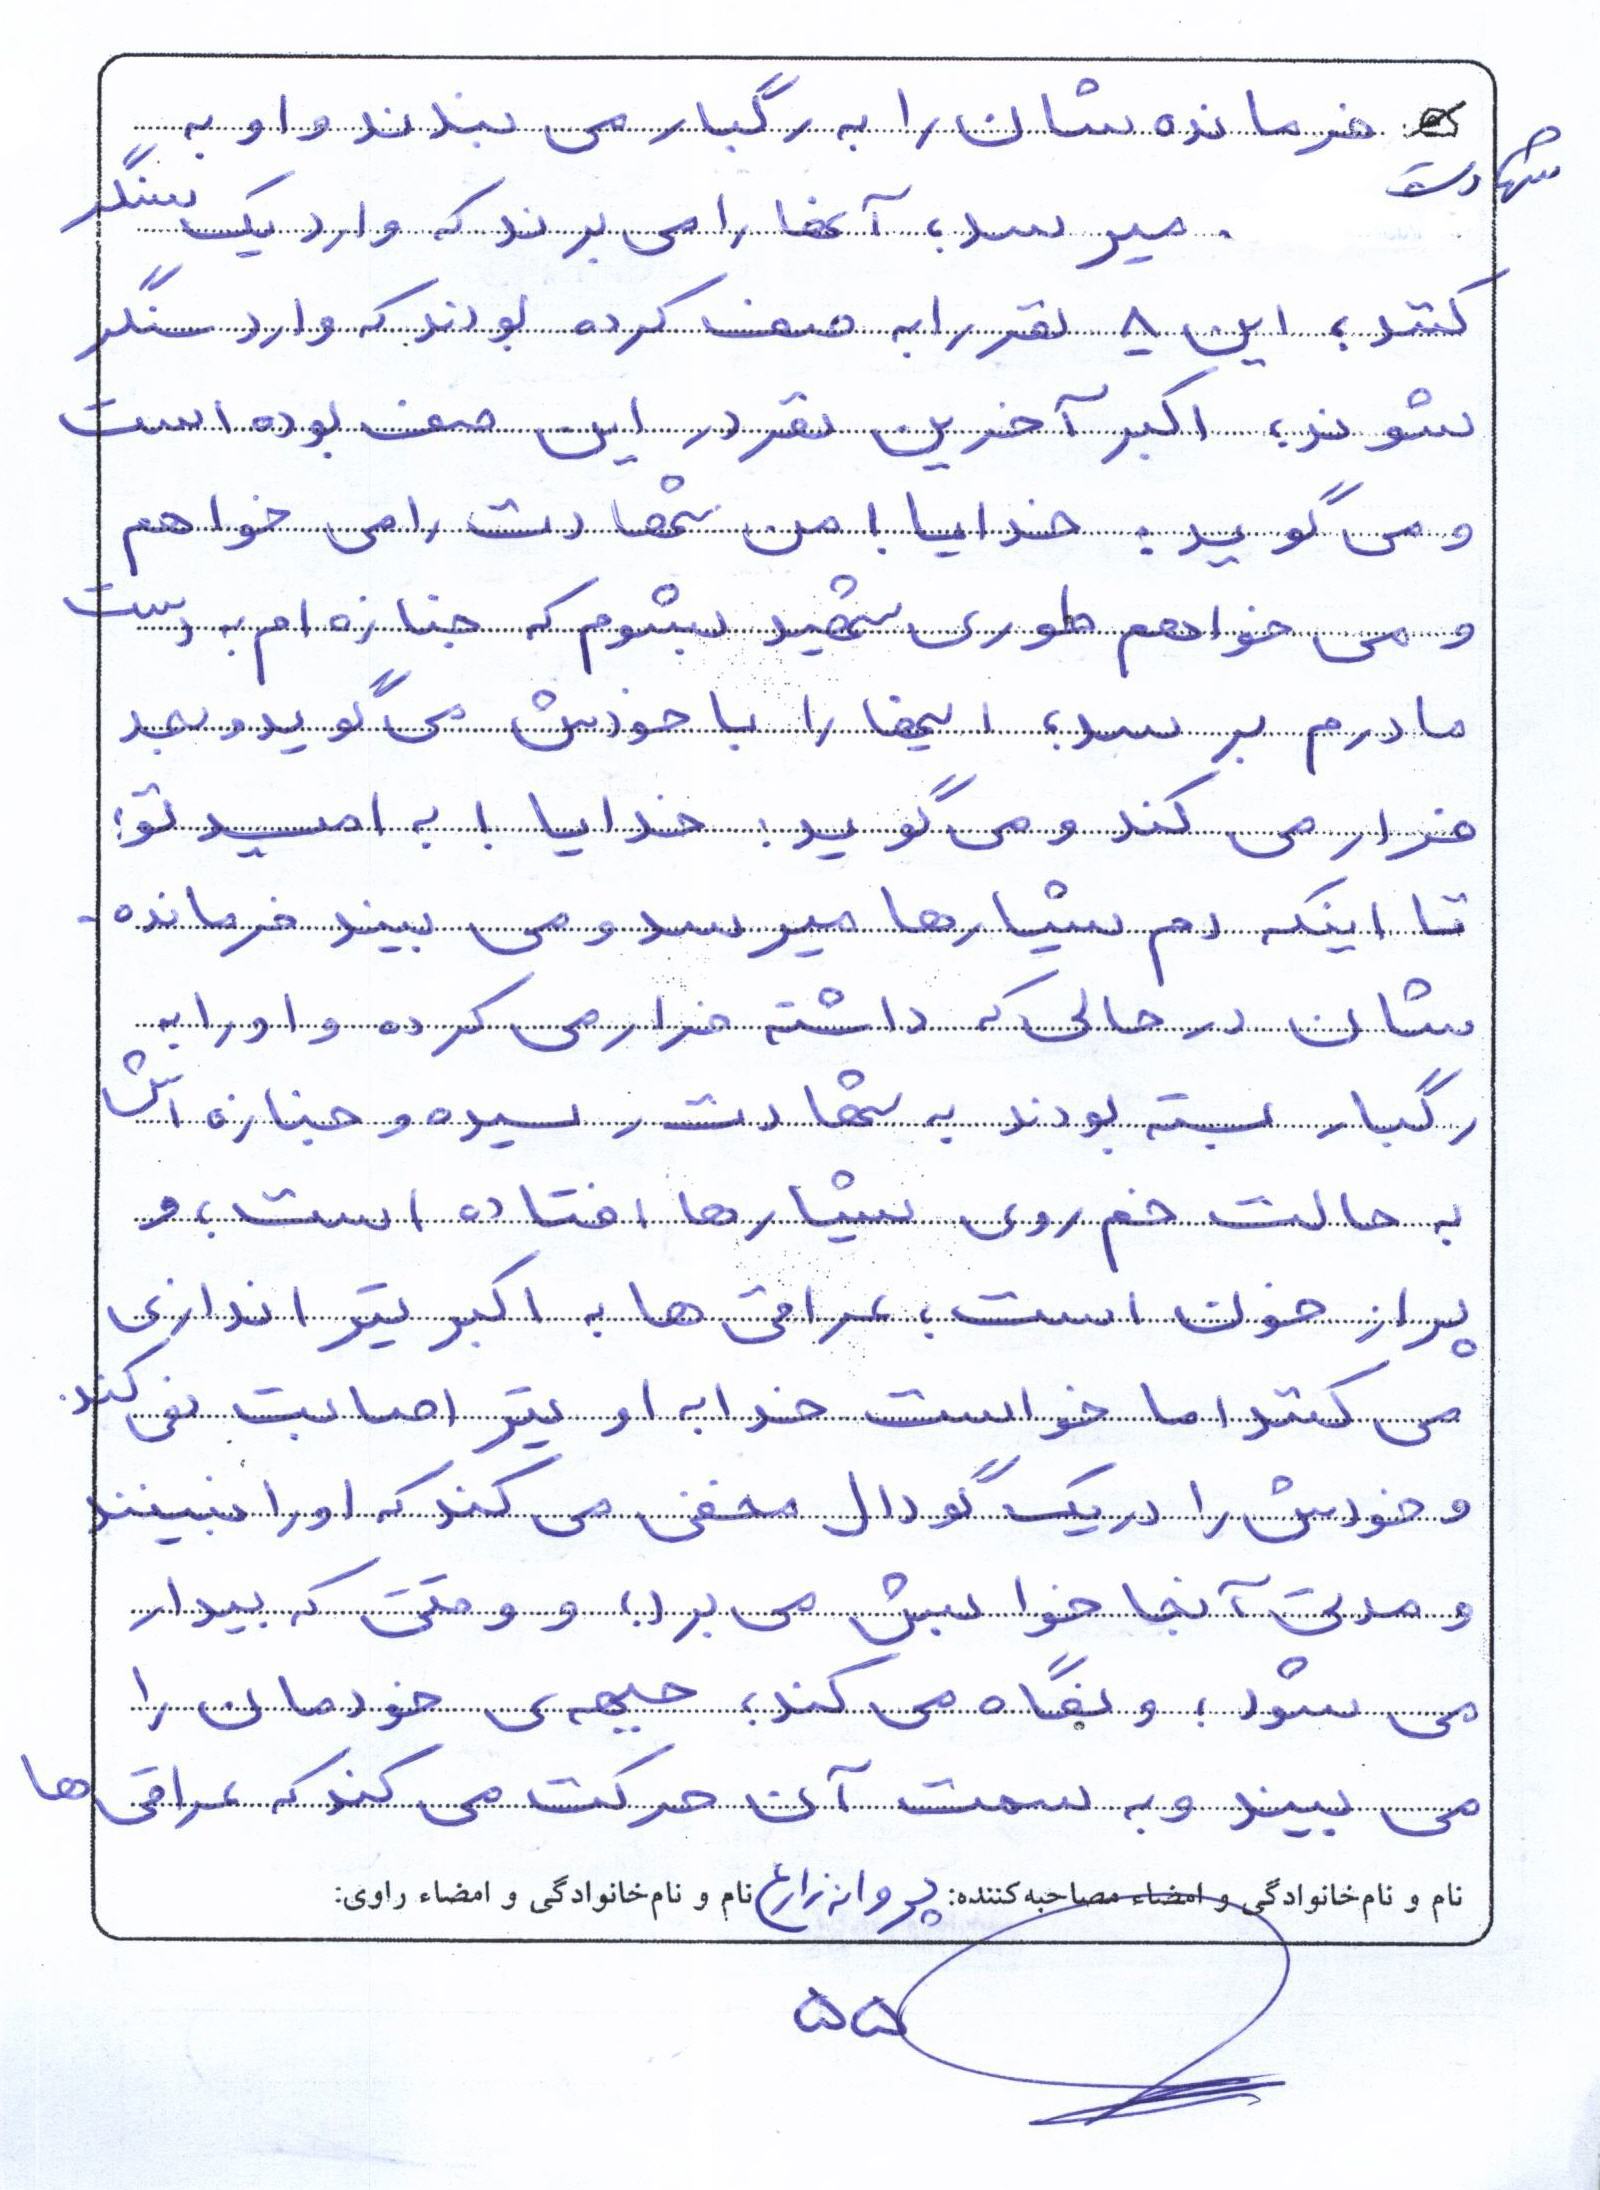 فرمانده شان را به رگبار می بندند و او به
شهادت میرسد؛ آنها را می برند که وارد یک سنگر
کنند؛ این ۸ نفر را به صف کرده بودند که وارد سنگر
شوند؛ اکبر آخرین نفر در این صف بوده است
و می گوید: خدایا! من شهادت را می خواهم
و می خواهم طوری شهید بشوم که جنازه ام به دست
مادرم برسد؛ اینها را با خودش می گوید و بعد
فرار می کند و می گوید: خدایا! به امید تو؛
تا اینکه دم شیارها میرسد و می بیند فرمانده-
شان در حالی که داشته فرار می کرده و او را به
رگبار بسته بودند به شهادت رسیده و جنازه اش
به حالت خم روی شیارها افتاده است، و
پر از خون است؛ عراقی ها به اکبر تیر اندازی
می کنند اما خواست خدا به او تیر اصابت نمی کند.
و خودش را در یک گودال مخفی می کند که او را نبینند
و مدتی آنجا خوابش می برد؛ و وقتی که بیدار
می شود؛ و نگاه می کند؛ جبهه ی خودمان را
می بیند و به سمت آن حرکت می کند که عراقی ها
نام و نام خانوادگی و امضاء مصاحبه کننده: پروانه زارع نام و نام خانوادگی و امضاء راوی:
۵۵